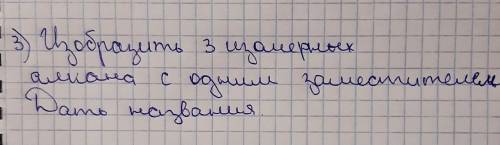 3) Изобразить 3 изомерных
алкана с одним заместителем
Дать названия.